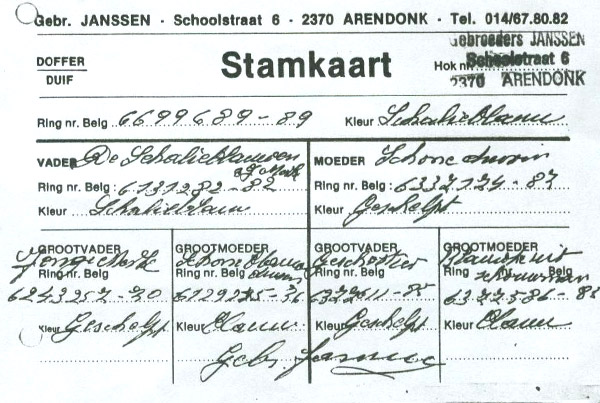 Gebr. JANSSEN - Schoolstraat 6 - 2370 ARENDONK - Tel. 014/67.80.82
Gebroeders JANSSEN
DOFFER Stamkaart Hok nr Schoolstraat 6
DUIF 2370 ARENDONK
Ring nr. Belg 6699689-89 Kleur Schalieblauw
VADER De Schalieblauwen MOEDER Schone duivin
Ring nr. Belg : 6131282-82 Ring nr. Belg : 6332124-87
Kleur Schalieblauw Kleur Geschelpt
GROOTVADER GROOTMOEDER GROOTVADER GROOTMOEDER
Jonge Merk Schone Geschelpte Blauwe
Ring nr. Belg Ring nr. Belg Ring nr. Belg Ring nr. Belg
Kleur Geschelpt Kleur Blauw Kleur Geschelpt Kleur Blauw
Gebr Janssen